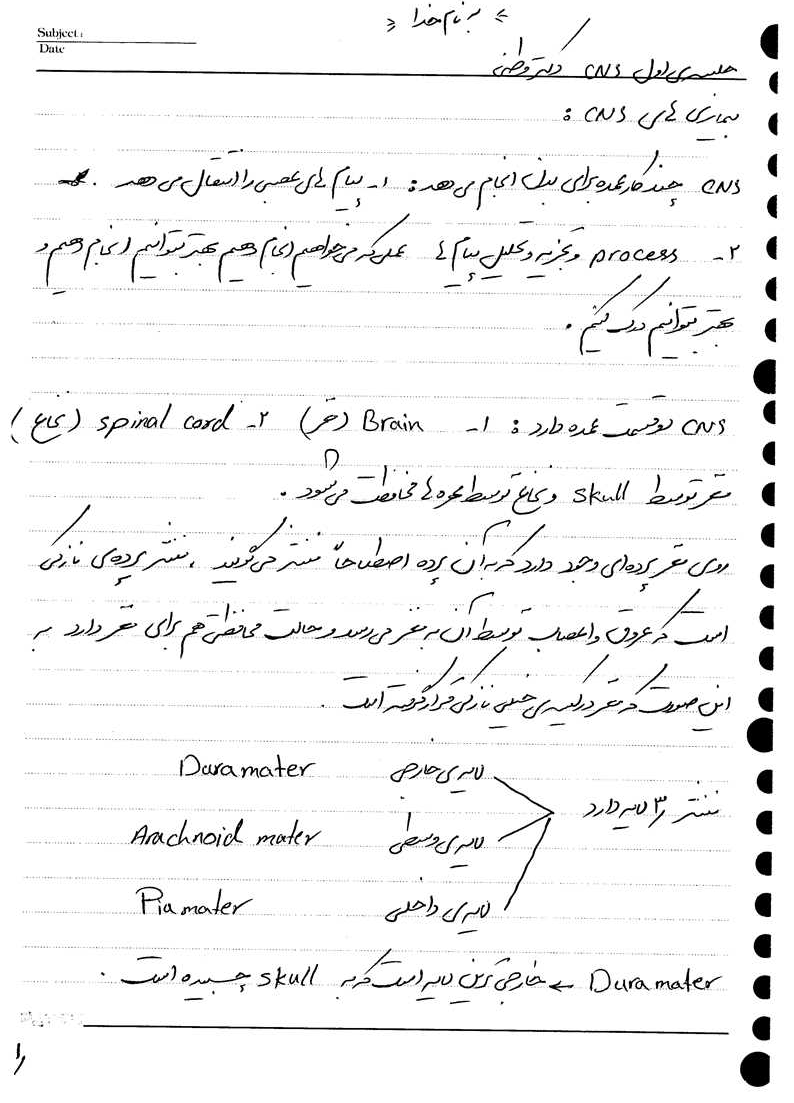 « به نام خدا »
Subject:
Date
جلسه‌ی اول CNS دکتر وطنی
بیماری های CNS :
CNS چند کار عمده برای بدن انجام می دهد : ۱- پیام های عصبی را انتقال می دهد .
۲- process و تجزیه و تحلیل پیام ها عملی که می خواهیم انجام دهیم بهتر بتوانیم انجام دهیم و
بهتر بتوانیم درک کنیم .
CNS دو قسمت عمده دارد : ۱- Brain (مغز) ۲- spinal cord (نخاع)
مغز توسط skull و نخاع توسط مهره ها محافظت می شود .
روی مغز پرده ای وجود دارد که به آن پرده اصطلاحاً مننژ می گویند ، مننژ پرده‌ی نازکی
است که عروق و اعصاب توسط آن به مغز می رسد و حالت محافظتی هم برای مغز دارد به
این صورت که مغز در کیسه ی خیلی نازکی قرار گرفته است .
مننژ ۳ لایه دارد
لایه ی خارجی Dura mater
لایه ی وسطی Arachnoid mater
لایه ی داخلی Pia mater
Dura mater ← خارجی ترین لایه است که به skull چسبیده است .
۱